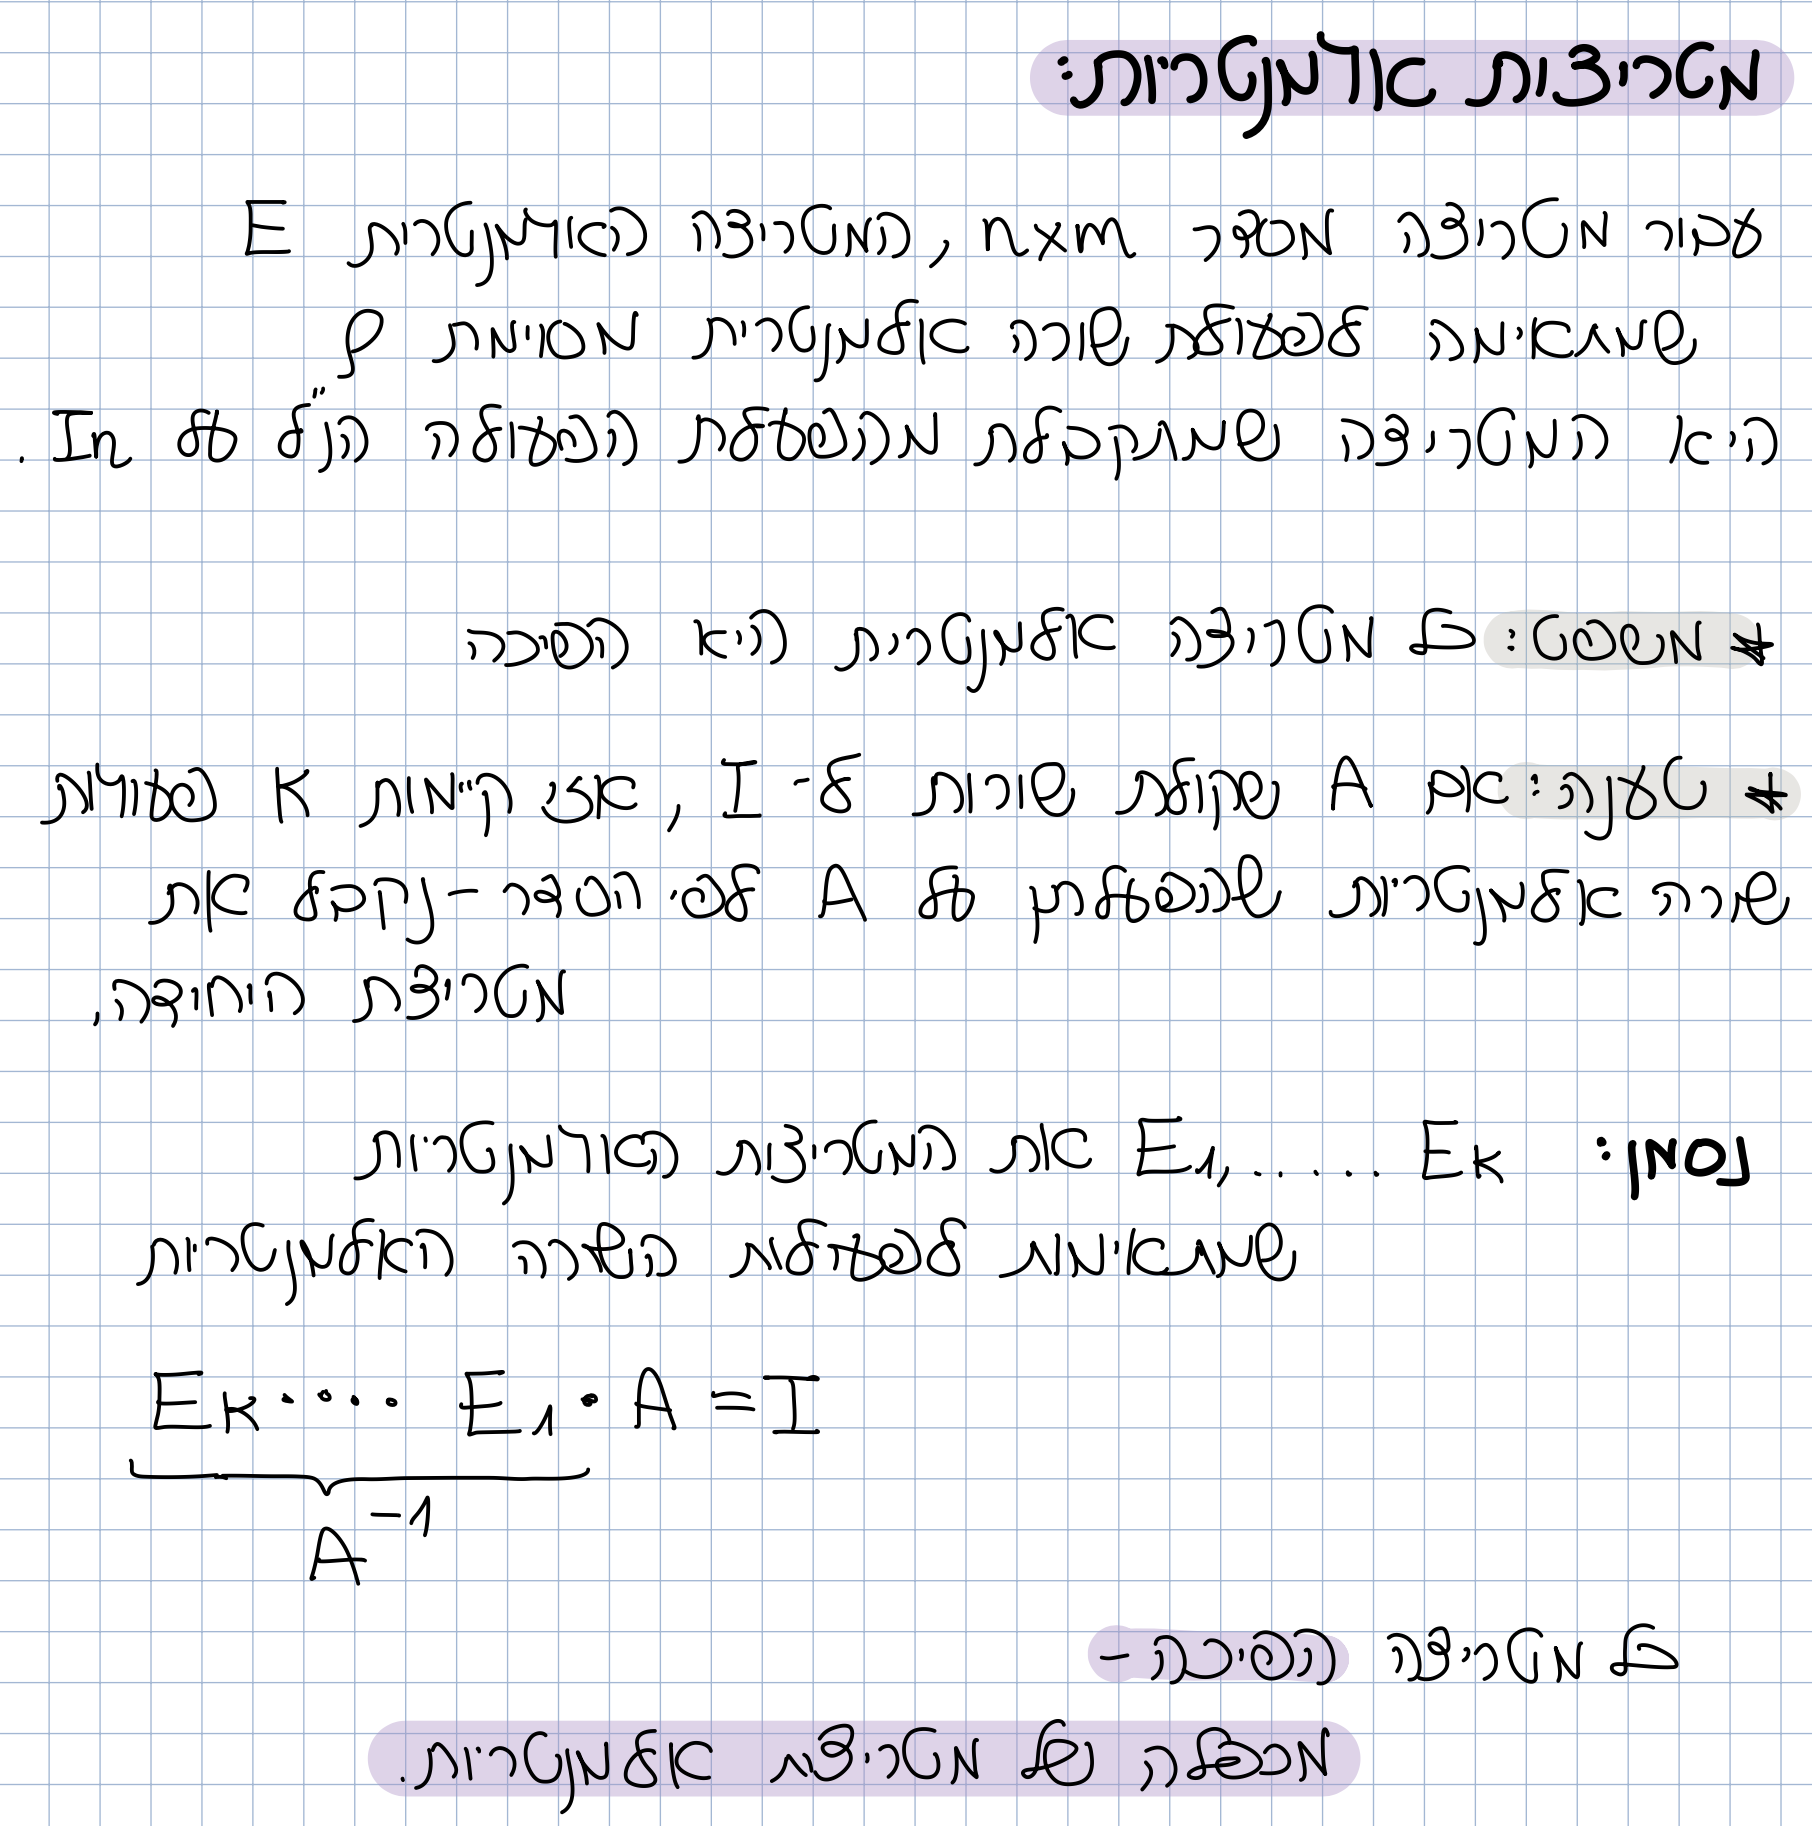 מטריצות אלמנטריות:
עבור מטריצה מסדר nxm, המטריצה האלמנטרית E
שמתאימה לפעולת שורה אלמנטרית מסוימת ρ
היא המטריצה שמתקבלת מהפעלת הפעולה הנ"ל על In.
* משפט: כל מטריצה אלמנטרית היא הפיכה
* טענה: אם A שקולת שורות ל- I, אזי קיימות K פעולות
שורה אלמנטריות שהפעלתן על A לפי הסדר - נקבל את
מטריצת היחידה,
נסמן: E1,..... Ek את המטריצות האלמנטריות
שמתאימות לפעולות השורה האלמנטריות
Ek · · · · E1 · A = I
A^-1
כל מטריצה הפיכה -
מכפלה של מטריצות אלמנטריות.